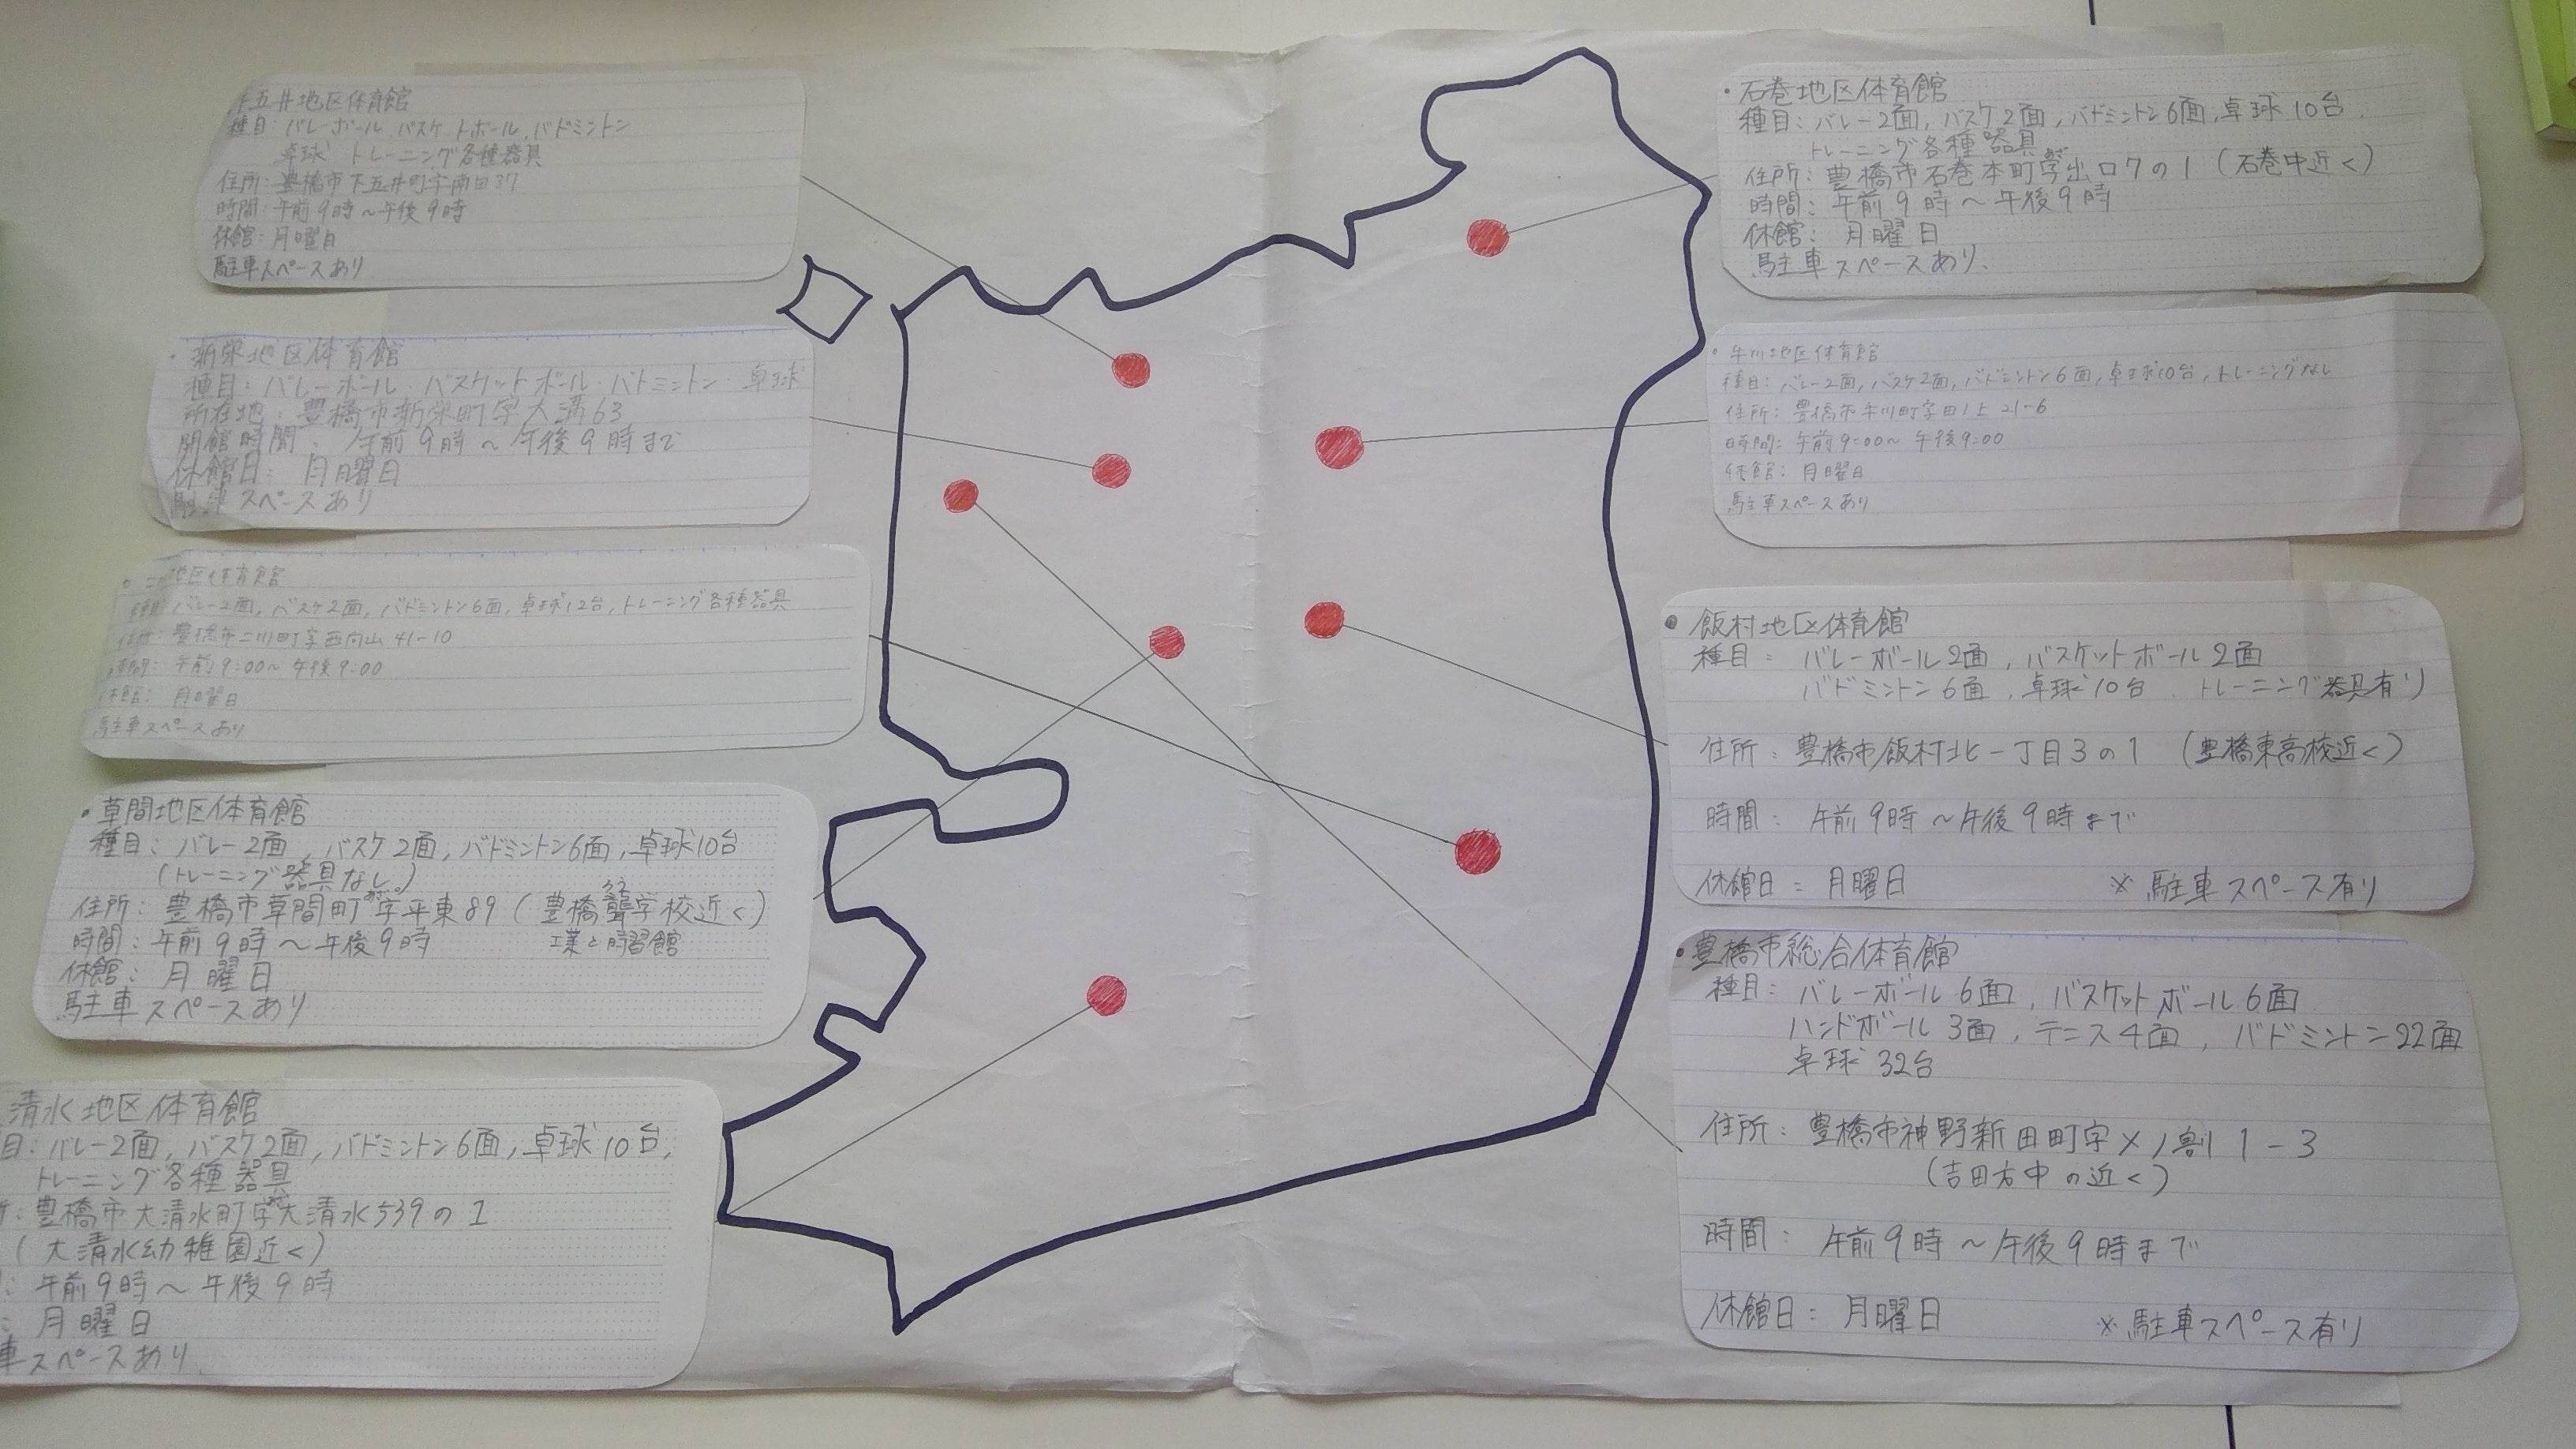 下五井地区体育館
種目: バレーボール、バスケットボール、バドミントン
卓球 トレーニング各種器具
住所: 豊橋市下五井町字南田37
時間: 午前9時〜午後9時
休館: 月曜日
駐車スペースあり
・新栄地区体育館
種目: バレーボール・バスケットボール・バドミントン・卓球
所在地: 豊橋市新栄町字大溝63
開館時間: 午前9時〜午後9時まで
休館日: 月曜日
駐車スペースあり
地区体育館
種目: バレー2面, バスケ2面, バドミントン6面, 卓球12台, トレーニング各種器具
住所: 豊橋市二川町字西向山41-10
時間: 午前9:00〜午後9:00
休館: 月曜日
駐車スペースあり
・草間地区体育館
種目: バレー2面, バスケ2面, バドミントン6面, 卓球10台
(トレーニング器具なし。)
住所: 豊橋市草間町字平東89 (豊橋聾学校近く)
時間: 午前9時〜午後9時 工業と時習館
休館: 月曜日
駐車スペースあり
清水地区体育館
目: バレー2面, バスケ2面, バドミントン6面, 卓球10台,
トレーニング各種器具
: 豊橋市大清水町字大清水539の1
(大清水幼稚園近く)
: 午前9時〜午後9時
: 月曜日
車スペースあり
・石巻地区体育館
種目: バレー2面, バスケ2面, バドミントン6面, 卓球10台,
トレーニング各種器具
住所: 豊橋市石巻本町字出口7の1 (石巻中近く)
時間: 午前9時〜午後9時
休館: 月曜日
駐車スペースあり.
・牛川地区体育館
種目: バレー2面, バスケ2面, バドミントン6面, 卓球10台, トレーニングなし
住所: 豊橋市牛川町字田ノ上21-6
時間: 午前9:00〜午後9:00
休館: 月曜日
駐車スペースあり
・飯村地区体育館
種目: バレーボール2面, バスケットボール2面
バドミントン6面, 卓球10台 トレーニング器具有り
住所: 豊橋市飯村北一丁目3の1 (豊橋東高校近く)
時間: 午前9時〜午後9時まで
休館日: 月曜日 ※駐車スペース有り
・豊橋市総合体育館
種目: バレーボール6面, バスケットボール6面
ハンドボール3面, テニス4面, バドミントン22面
卓球32台
住所: 豊橋市神野新田町字メノ割1-3
(吉田方中の近く)
時間: 午前9時〜午後9時まで
休館日: 月曜日 ※駐車スペース有り